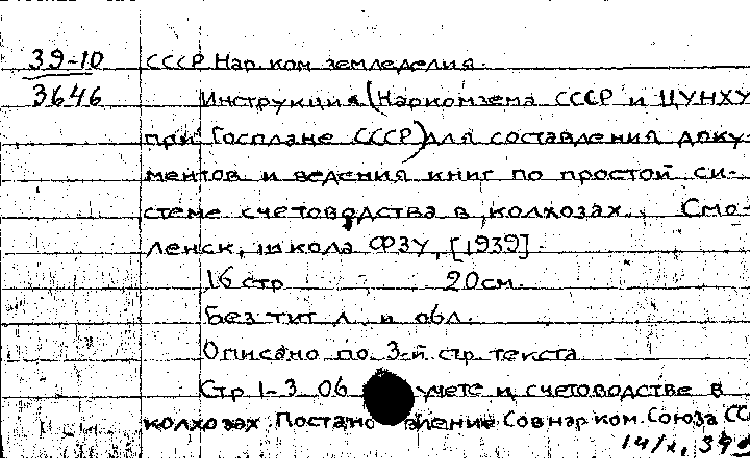 39-10 СССР Нар. ком. земледелия.
3646 Инструкция (Наркомзема СССР и ЦУНХУ
при Госплане СССР) для составления доку-
ментов и ведения книг по простой си-
стеме счетоводства в колхозах. Смо-
ленск, школа ФЗУ, [1939].
16 стр. 20 см.
Без тит. л. и обл.
Описано по 3-й стр. текста
Стр. 1-3 Об учете и счетоводстве в
колхозах. Постановление Совнаркома Союза СС